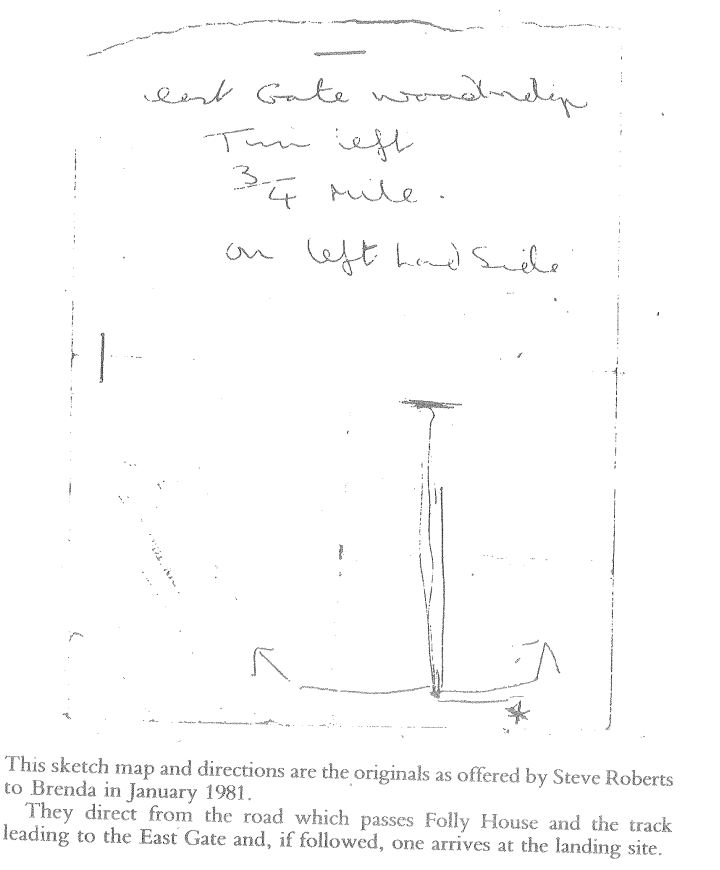 east Gate woodbridge
Turn left
3/4 Mile.
on left hand Side
This sketch map and directions are the originals as offered by Steve Roberts
to Brenda in January 1981.
They direct from the road which passes Folly House and the track
leading to the East Gate and, if followed, one arrives at the landing site.